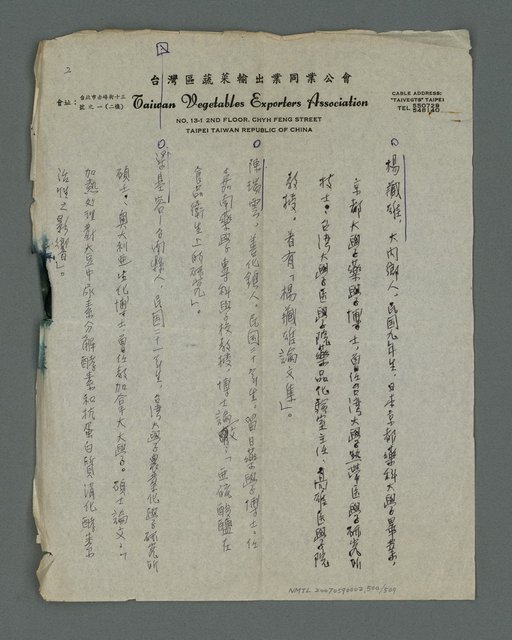 2
台灣區蔬菜輸出業同業公會
會址：台北市赤峰街十三號之一(二樓)
Taiwan Vegetables Exporters Association
NO. 13-1 2ND FLOOR. CHYH FENG STREET
TAIPEI TAIWAN REPUBLIC OF CHINA
CABLE ADDRESS:
"TAIVEGTS" TAIPEI
TEL. 550728
548140
楊藏雄，大內鄉人，民国九年生，日本京都藥科大學畢業，
京都大學藥學博士，曾任台湾大學熱帶医學研究所
技士、台湾大學医學院藥品化驗室主任、高雄医學院
教授。著有「楊藏雄論文集」。
陳瑞雲，善化鎮人。民国二十年生。留日藥學博士。任
嘉南藥學專科學校教授，博士論文，「亜硫酸鹽在
食品衛生上的研究」。
梁基安，台南縣人，民国二十一年生，台湾大學農業化學研究所
碩士，奧大利亜生化博士，曾任教加拿大大學。碩士論文，「
加熱处理對大豆中尿素分解酵素和抗蛋白質消化酵素
活性之影響」。
NMTL 20070590002,500/509